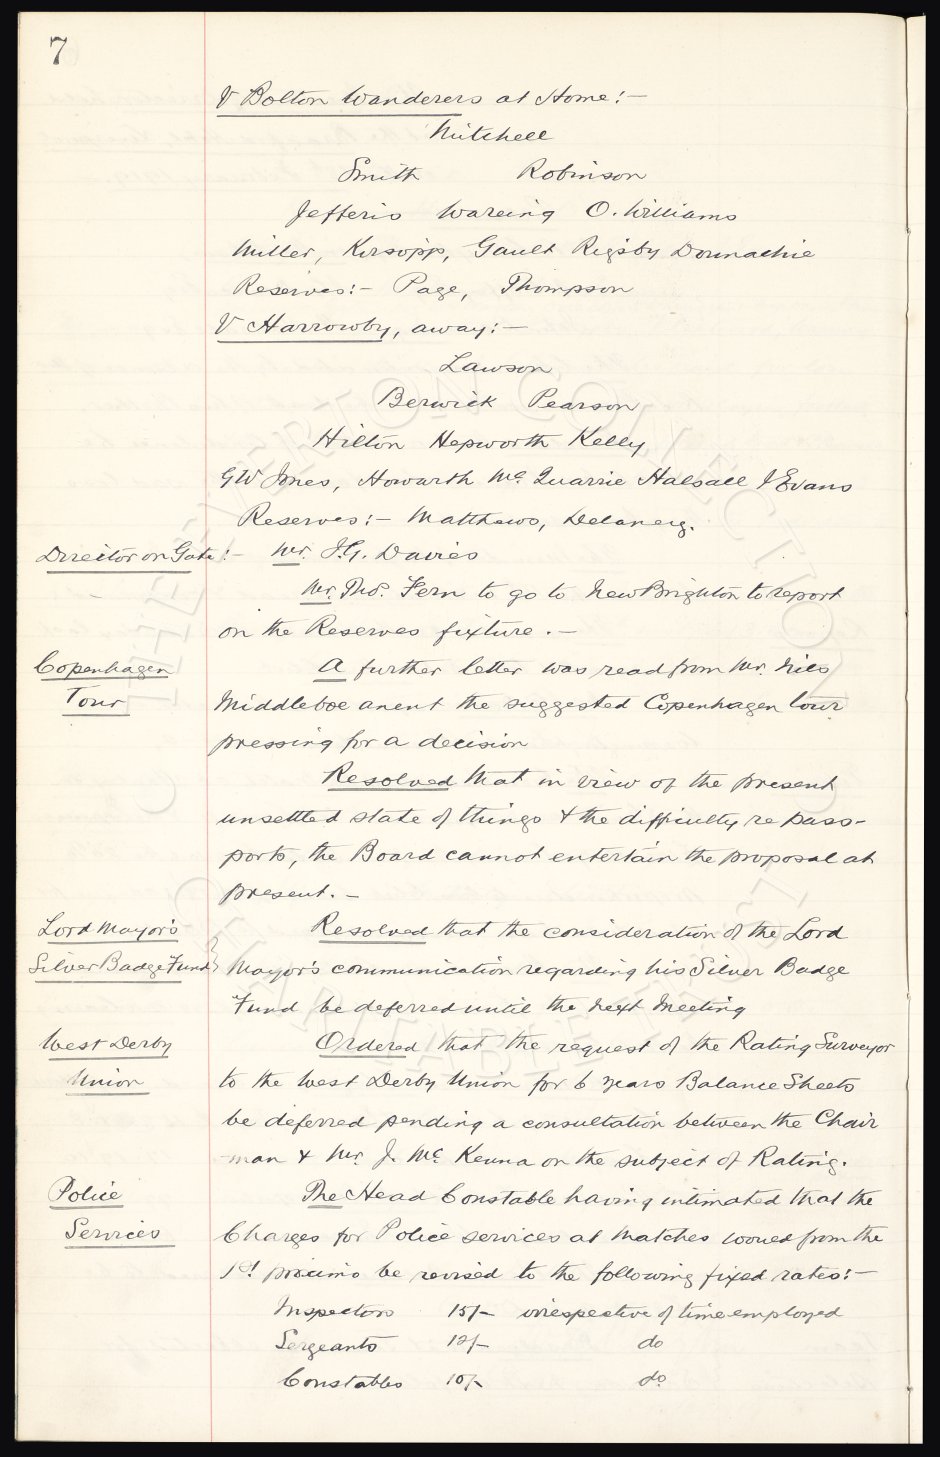 7
V Bolton Wanderers at Home:-
Mitchell
Smith Robinson
Jefferis Wareing O. Williams
Miller, Kirsopp, Gault Rigsby Donnachie
Reserves:- Page, Thompson
V Harrowby, away:-
Lawson
Berwick Pearson
Hilton Hepworth Kelly
GW Jones, Howarth Mc Quarrie Halsall J Evans
Reserves:- Matthews, Delaney.
Director on Gate:- Mr. J.G. Davies
Mr. Thos. Fern to go to New Brighton to report
on the Reserves fixture.-
Copenhagen
Tour
A further letter was read from Mr. Nils
Middleboe anent the suggested Copenhagen tour
pressing for a decision
Resolved that in view of the present
unsettled state of things & the difficulty re pass-
ports, the Board cannot entertain the proposal at
present.-
Lord Mayor's
Silver Badge Fund}
Resolved that the consideration of the Lord
Mayor's communication regarding his Silver Badge
Fund be deferred until the next meeting
West Derby
Union
Ordered that the request of the Rating Surveyor
to the West Derby Union for 6 years Balance Sheets
be deferred pending a consultation between the Chair
-man & Mr. J. Mc Kenna on the subject of Rating.
Police
Services
The Head Constable having intimated that the
Charges for Police services at matches would from the
1st proximo be revised to the following fixed rates:-
Inspectors 15/- irrespective of time employed
Sergeants 12/- do
Constables 10/- do